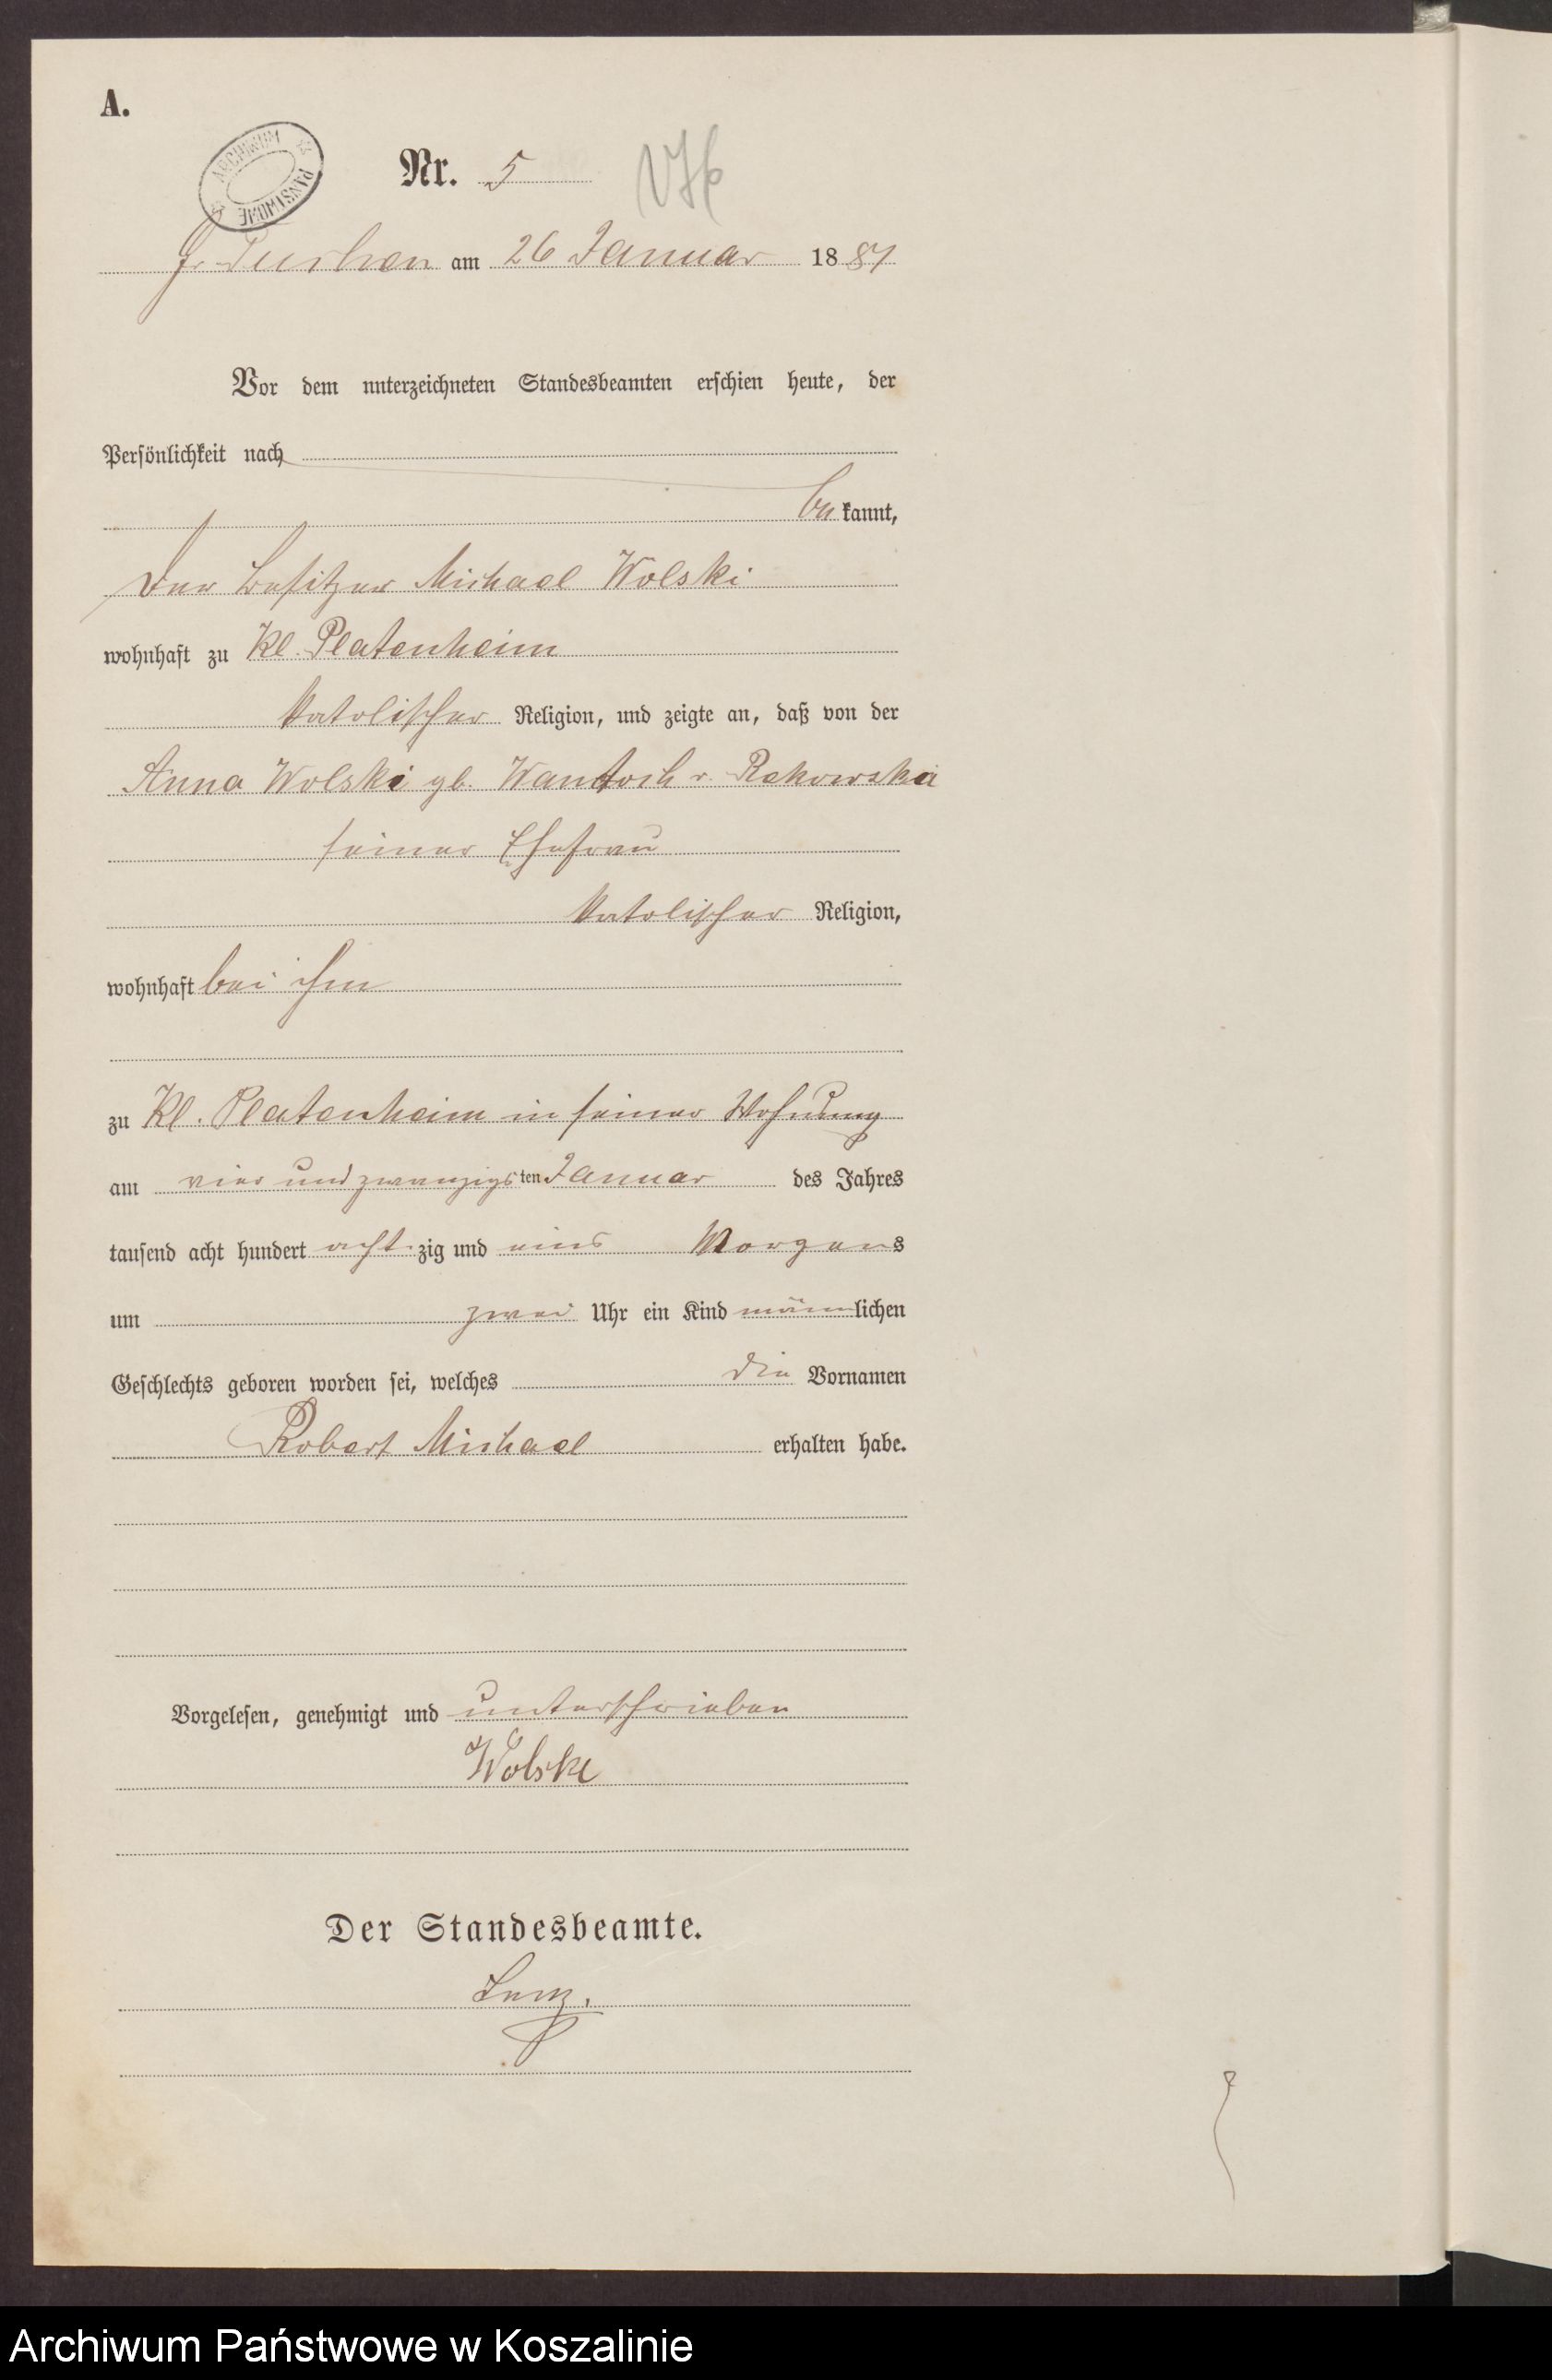 A.
ARCHIWUM PAŃSTWOWE
Nr. 5
Gr. Tuchen am 26 Januar 1881
Vor dem unterzeichneten Standesbeamten erschien heute, der
Persönlichkeit nach
bekannt,
der Besitzer Michael Wolski
wohnhaft zu Kl. Platenheim
katolischer Religion, und zeigte an, daß von der
Anna Wolski gb. Wantoch v. Rekowski
seiner Ehefrau
katolischer Religion,
wohnhaft bei ihm
zu Kl. Platenheim in seiner Wohnung
am vier und zwanzigsten Januar des Jahres
tausend acht hundert achtzig und eins Morgens
um zwei Uhr ein Kind männlichen
Geschlechts geboren worden sei, welches die Vornamen
Robert Michael erhalten habe.
Vorgelesen, genehmigt und unterschrieben
Wolski
Der Standesbeamte.
Archiwum Państwowe w Koszalinie